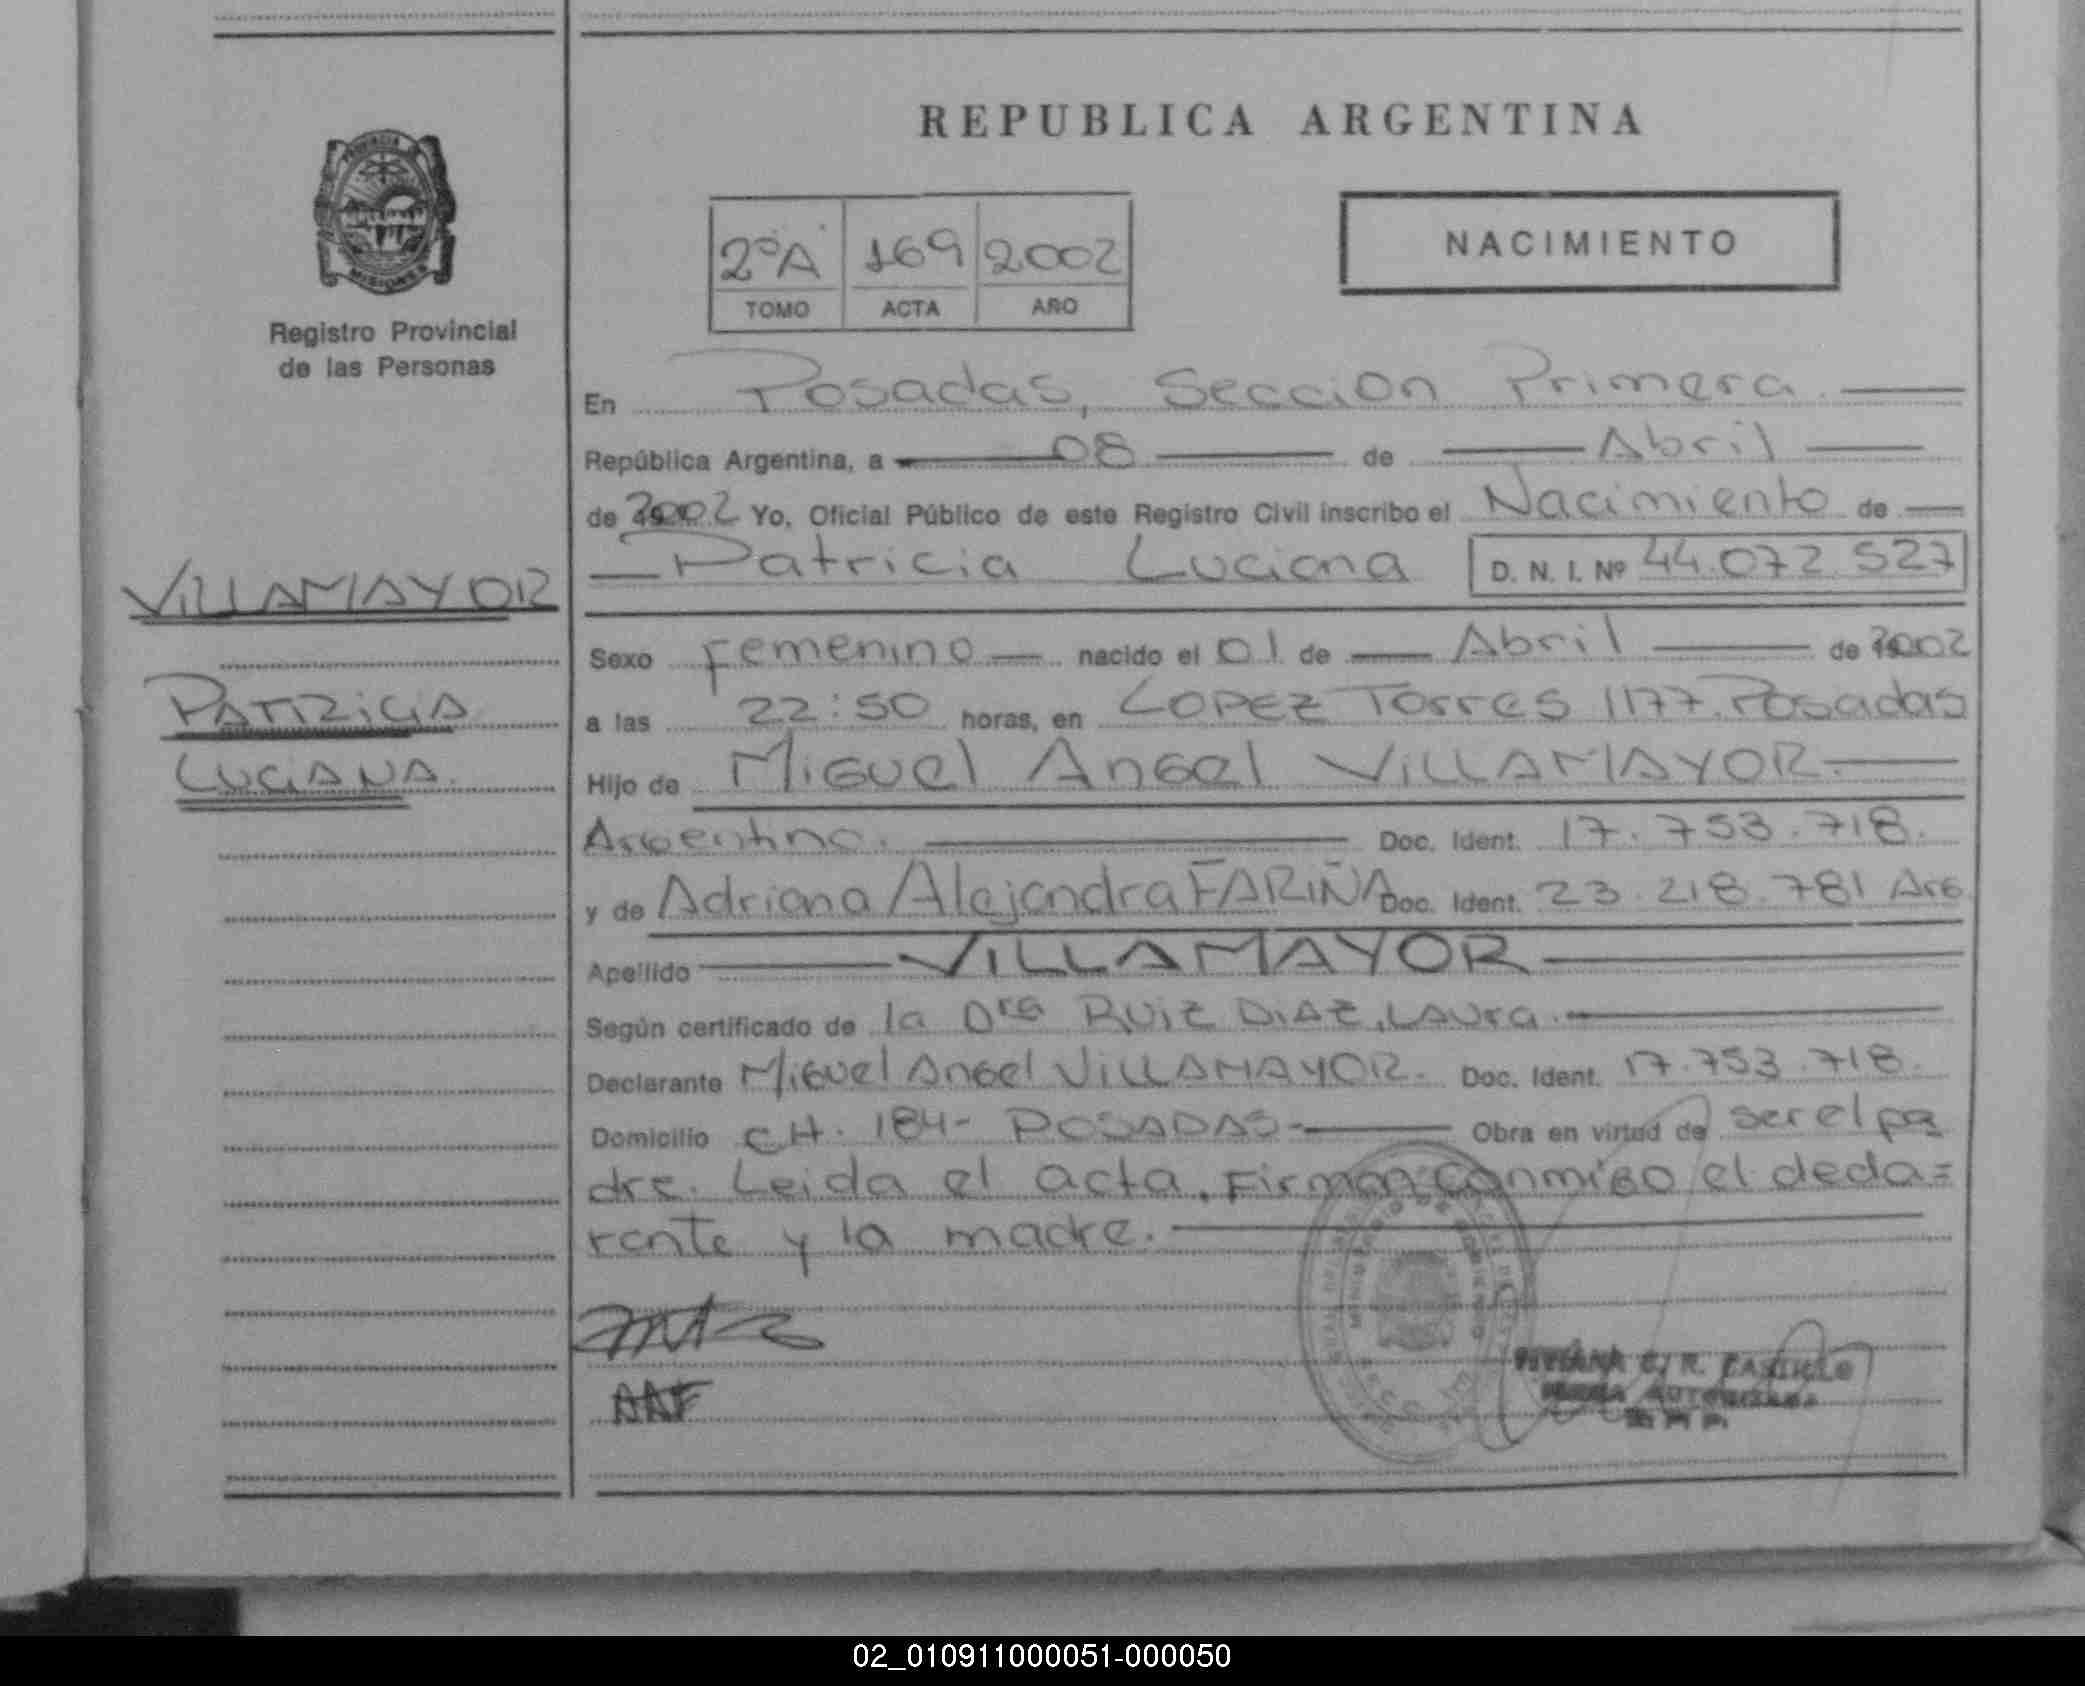 REPUBLICA ARGENTINA
2ºA 169 2002
TOMO ACTA AÑO
NACIMIENTO
PROVINCIA DE
MISIONES
Registro Provincial
de las Personas
VILLAMAYOR
PATRICIA
LUCIANA.
En Posadas, Sección Primera
República Argentina, a 08 de Abril
de 2002 Yo, Oficial Público de este Registro Civil inscribo el Nacimiento de
Patricia Luciana D. N. I. Nº 44.072.527
Sexo Femenino nacido el 01 de Abril de 2002
a las 22:50 horas, en LOPEZ TORRES 1177. Posadas
Hijo de Miguel Angel VILLAMAYOR.
Argentino. Doc. Ident. 17.753.718.
y de Adriana Alejandra FARIÑA Doc. Ident. 23.218.781 Arg
Apellido VILLAMAYOR
Según certificado de la Dra RUIZ DIAZ, LAURA.
Declarante Miguel Angel VILLAMAYOR. Doc. Ident. 17.753.718.
Domicilio CH. 184- POSADAS- Obra en virtud de ser el pa
dre. Leida el acta, Firman conmigo el decla=
rante y la madre.
AAF
C. R. CASTILLO
AUTORIZADA
02_010911000051-000050